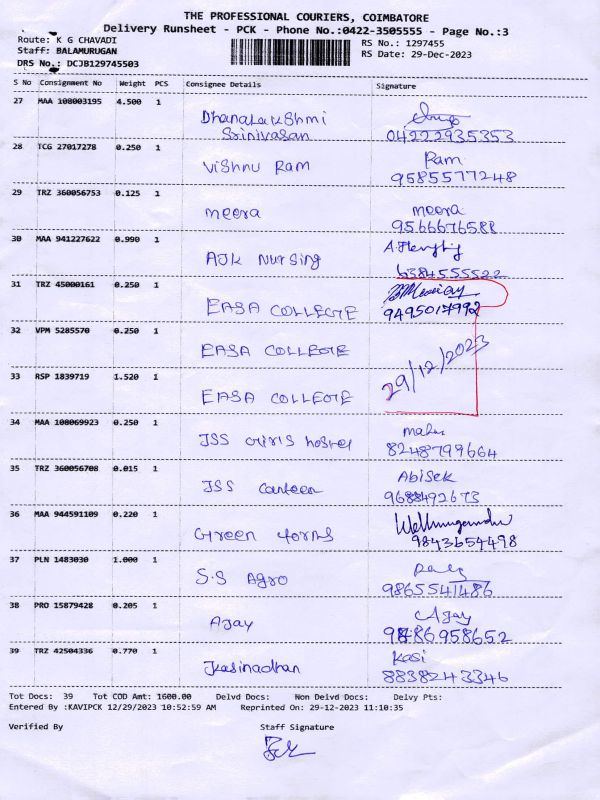 THE PROFESSIONAL COURIERS, COIMBATORE
Delivery Runsheet - PCK - Phone No.:0422-3505555 - Page No.:3
Route: K G CHAVADI
Staff: BALAMURUGAN
DRS No.: DCJB129745503
RS No.: 1297455
RS Date: 29-Dec-2023
S No Consignment No Weight PCS Consignee Details Signature
27 MAA 108003195 4.500 1 Dhanalakshmi Srinivasan 04222935353
28 TCG 27017278 0.250 1 Vishnu Ram Ram 9585577248
29 TRZ 360056753 0.125 1 meera meera 9566676588
30 MAA 941227622 0.990 1 AJK Nursing 6384555522
31 TRZ 45000161 0.250 1 EASA COLLEGE 9495017992
32 VPM 5285570 0.250 1 EASA COLLEGE
33 RSP 1839719 1.520 1 EASA COLLEGE 29/12/2023
34 MAA 108069923 0.250 1 JSS Girls hostel 8248799664
35 TRZ 360056708 0.015 1 JSS Canteen Abisek 9688492673
36 MAA 944591109 0.220 1 Green forms 9843654498
37 PLN 1483030 1.000 1 S.S Agro 9865541486
38 PRO 15879428 0.205 1 Ajay Ajay 9486958652
39 TRZ 42504336 0.770 1 Kasinadhan Kasi 8838243346
Tot Docs: 39 Tot COD Amt: 1600.00 Delvd Docs: Non Delvd Docs: Delvy Pts:
Entered By :KAVIPCK 12/29/2023 10:52:59 AM Reprinted On: 29-12-2023 11:10:35
Verified By Staff Signature